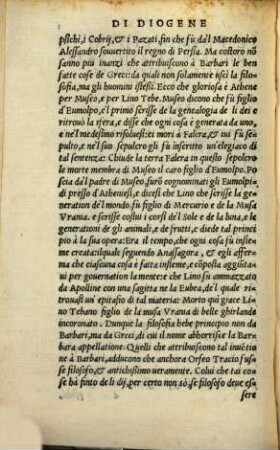 DI DIOGENE
pſichi, i Cobrij, & i Pazati, fin che fù dal Macedonico
Aleſſandro ſouuertito il regno di Perſia. Ma coſtoro nō
ſanno piu inanzi che attribuiſcono à Barbari le ben
fatte coſe de Greci: da quali non ſolamente uſci la filo
ſofia, ma gli huomini iſteſſi. Ecco che glorioſa è Athene
per Muſeo, per Lino Tebe. Muſeo dicono che fù figlio
d'Eumolpo, e'l primo che ſcriſſe de la genealogia di i dei e
ritrouò la ſfera, e diſſe che ogni coſa è generata da uno,
e nel medeſimo riſoluerſi: el morì à Falera, & cui fù ſe
pulto, e nel ſuo ſepolcro gli fù inſcritto un'elegiaco di
tal ſentenza: Chiude la terra Falera in queſto ſepolcro
le morte membra di Muſeo il caro figlio d'Eumolpo. Po
ſcia del padre di Muſeo, furō cognominati gli Eumolpi-
di, preſſo d'Athenieſi, e diceſi che Lino che fù de la genera
tione del mondo, fù figlio di Mercurio e de la Muſa
Vrania. e ſcriſſe coſtui i corſi del Sole e de la luna, e le
generationi de gli animali, e de frutti, e diede tale prin
cipio à la ſua opera: Era il tempo, che ogni coſa fù inſie
me creata: ilquale ſeguendo Anaſſagora, & egli affer-
ma che ciaſcuna coſa è fatta inſieme, e eſſoſta aggiūta-
ui per gouernation la mente: e che Lino fù ammazzato
da Apolline con una ſagitta ne la Eubea, del quale ri-
trouaſi un'epitafio di tal materia: Morto quì giace Li
no Tebano figlio de la muſa Vrania di belle ghirlande
incoronato. Dunque la filoſofia hebe principio non da
Barbari, ma da Greci, di cui il nome abhorriſce la Bar-
bara appellatione. Quelli che attribuiſcono tal inuētio
ne à Barbari, adducono che anchora Orfeo Tracio fuſ-
ſe filoſofo, & antichiſſimo ueramente. Colui che tai co-
ſe hà finto de li dij, per certo non sò, ſe filoſofo deue eſ-
ſere